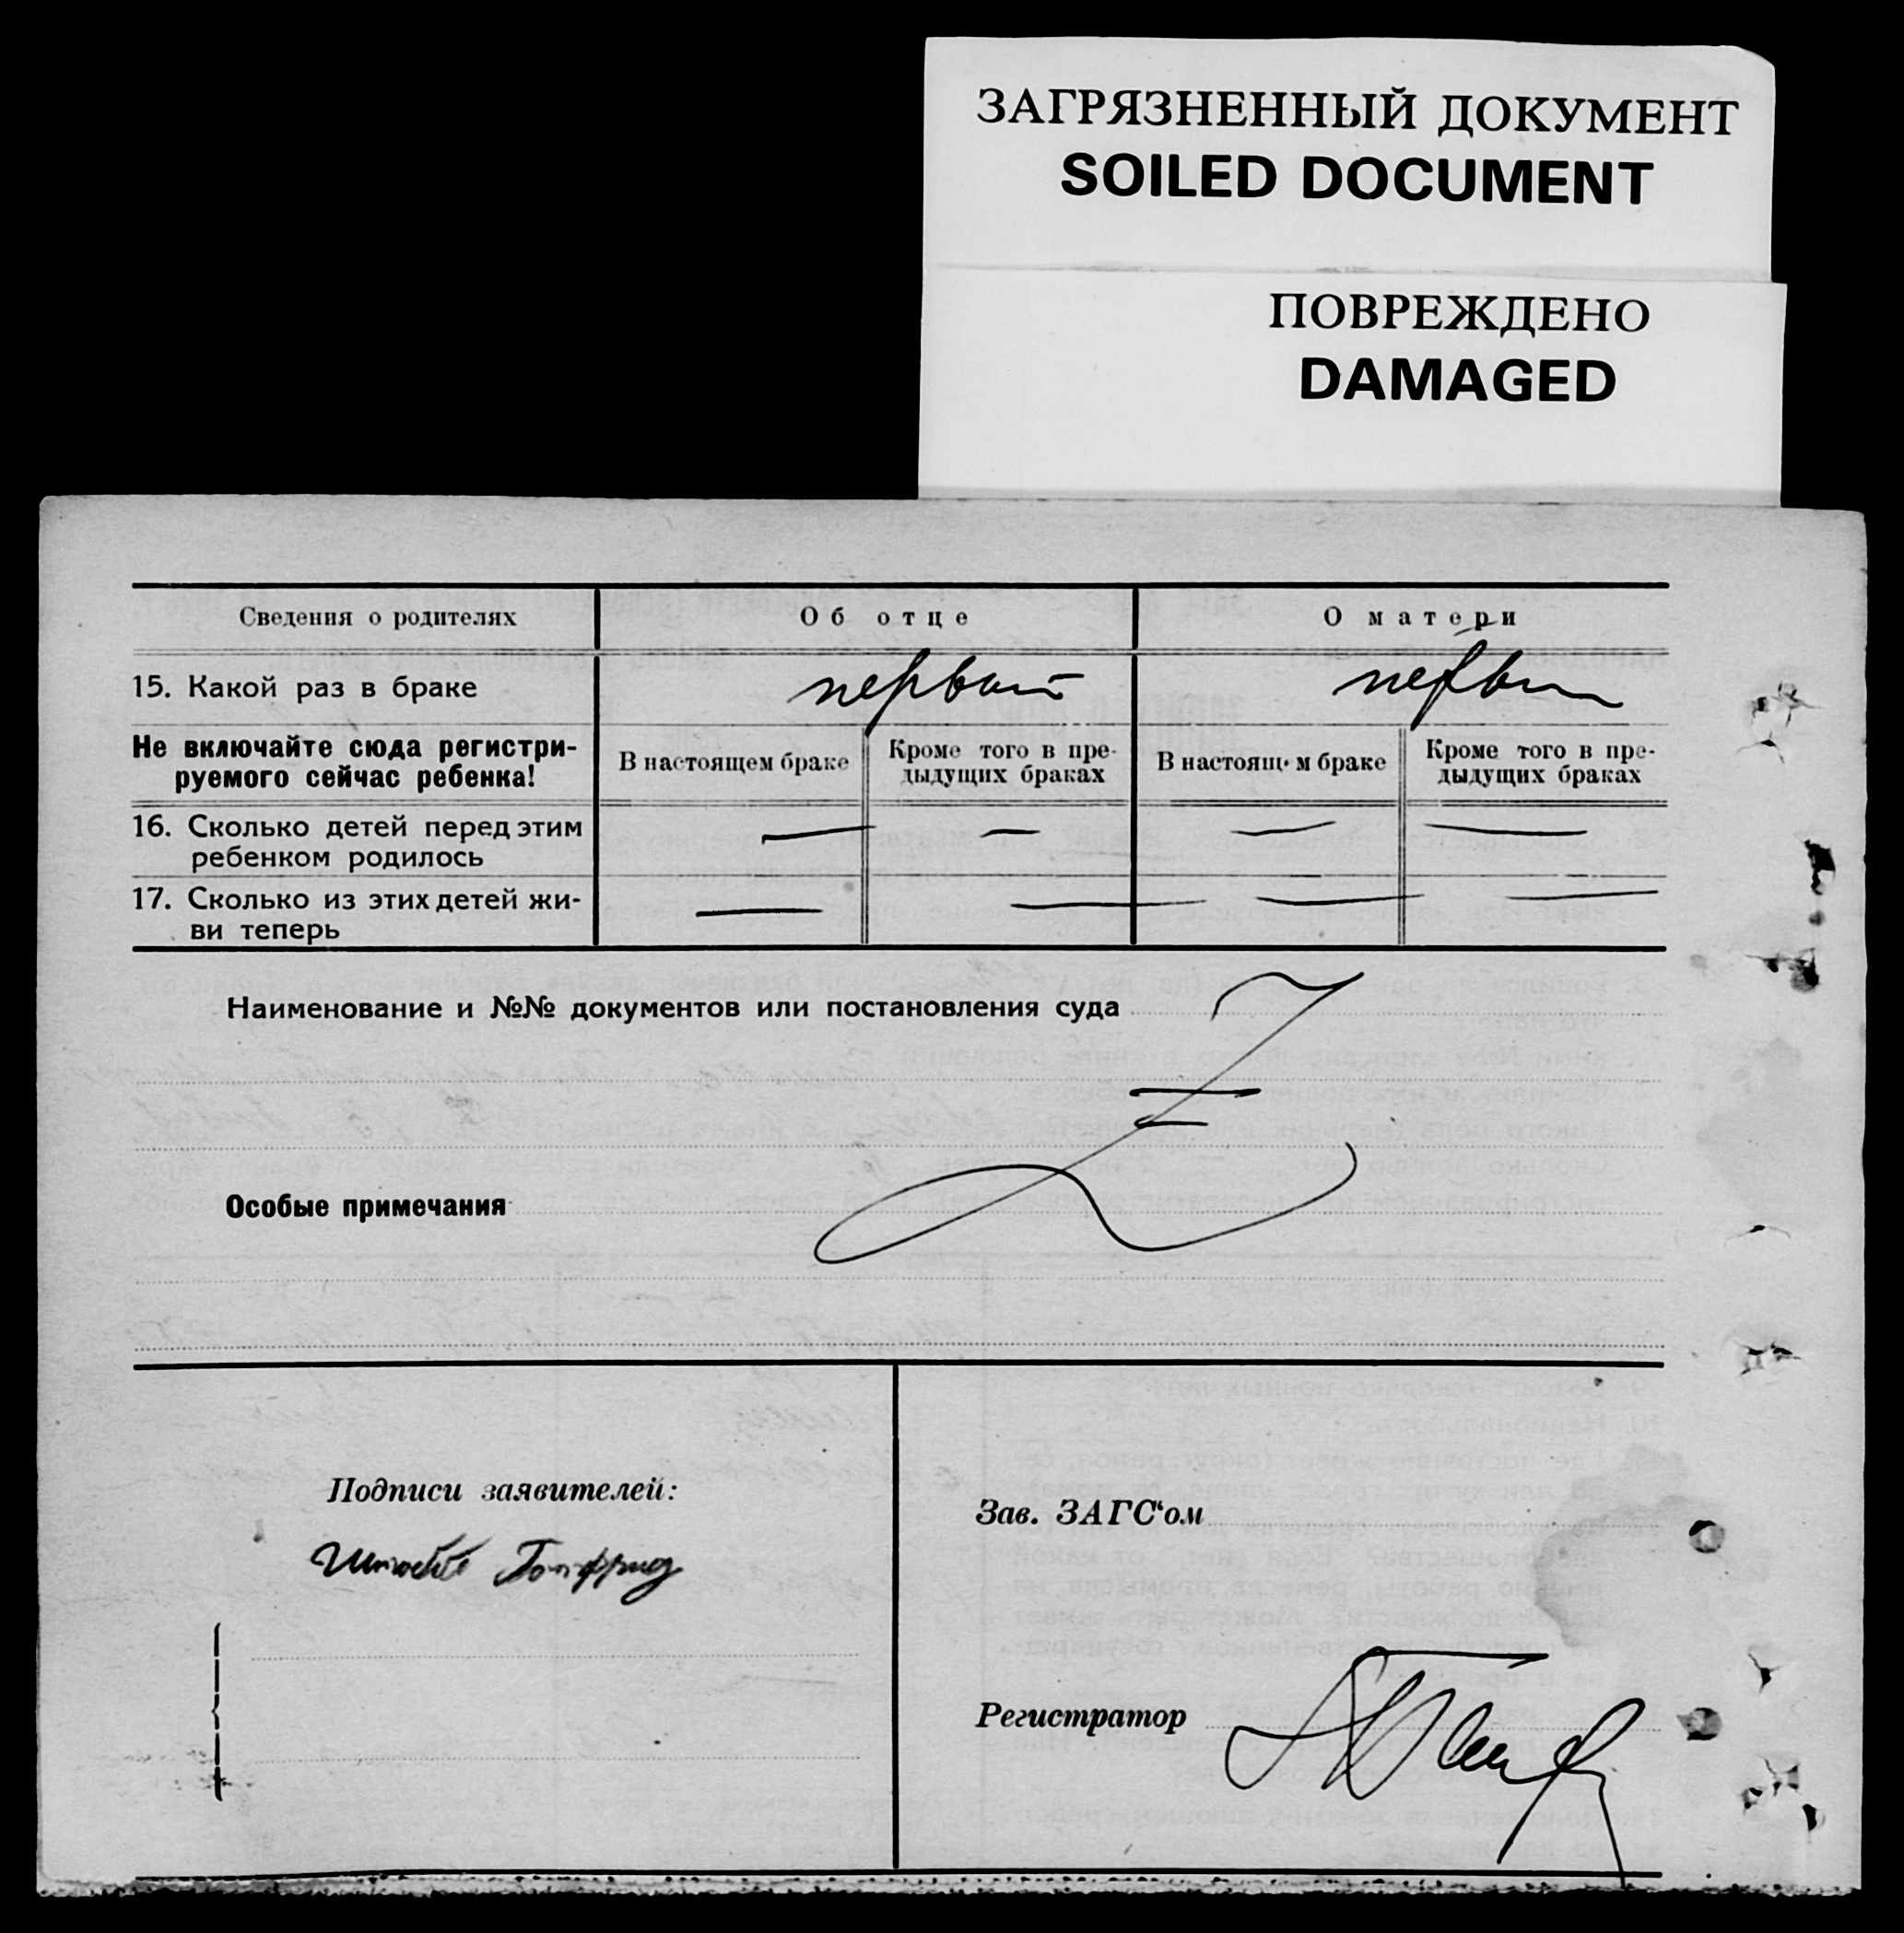 ЗАГРЯЗНЕННЫЙ ДОКУМЕНТ
SOILED DOCUMENT
ПОВРЕЖДЕНО
DAMAGED
Сведения о родителях Об отце О матери
15. Какой раз в браке первый первый
Не включайте сюда регистри-
руемого сейчас ребенка!
В настоящем браке Кроме того в пре-
дыдущих браках
В настоящем браке Кроме того в пре-
дыдущих браках
16. Сколько детей перед этим
ребенком родилось — — — —
17. Сколько из этих детей жи-
ви теперь — — — —
Наименование и №№ документов или постановления суда
Особые примечания
Подписи заявителей:
Готфрид
Зав. ЗАГС‘ом
Регистратор